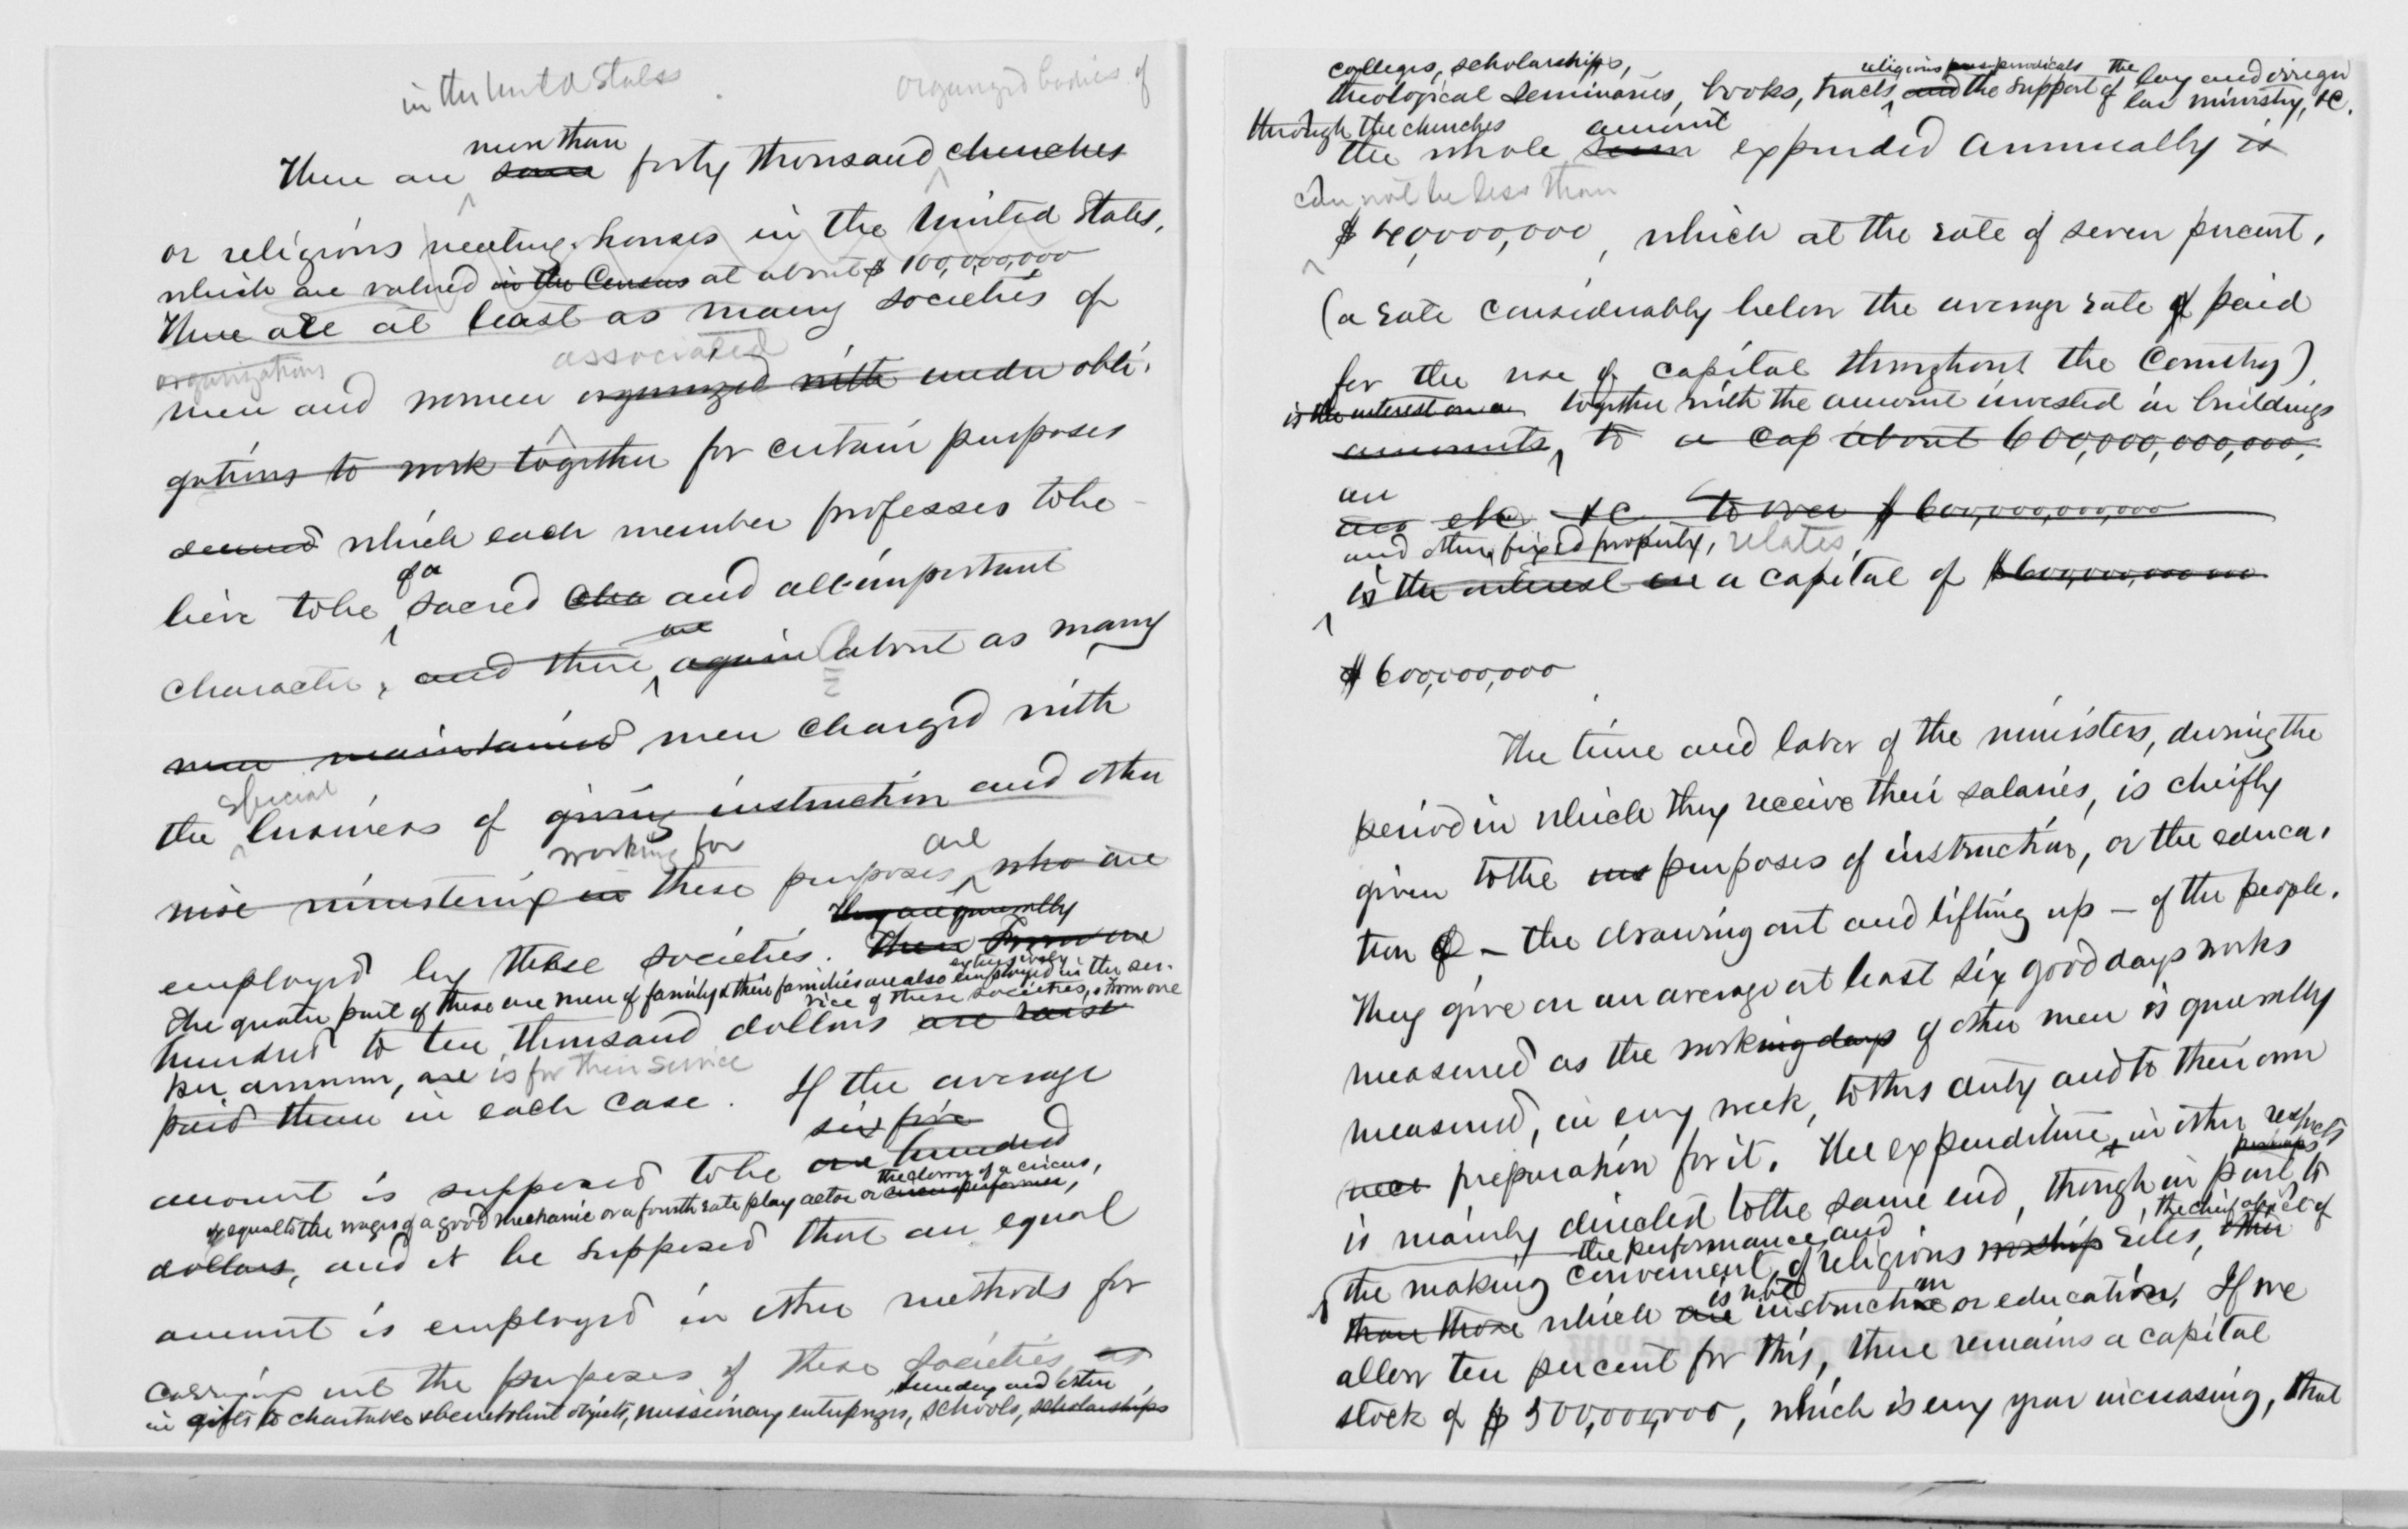 in the United States
organized bodies of
more than
There are some forty thousand churches
or religious meeting-houses in the United States,
which are valued in the Census at about $100,000,000
There are at least as many societies of
organizations
associated
men and women organized with under obli-
gations to work together for certain purposes
deemed which each member professes to be-
of a
lieve to be sacred cha and all-important
are
character, and there again about as many
men maintained men charged with
special
the business of giving instruction and other
working for are
wise ministering in these purposes who are
They are generally
employed by these societies. Them From one
extensively
The greater part of these are men of family & their families are also employed in the ser-
vice of these societies, & from one
hundred to ten thousand dollars are raise
per annum, are is for their service
paid them in each case. If the average
six five
amount is supposed to be one hundred
the clown of a circus,
equal to the wages of a good mechanic or a fourth rate play actor or circus performer,
dollars, and it be supposed that an equal
amount is employed in other methods for
carrying out the purposes of these societies as
Sunday and other
in gifts to charitable & benevolent objects, missionary enterprizes, schools, scholarships
colleges, scholarships,
religious periodicals the lay and irregu
theological seminaries, books, tracts and the support of lar ministry, &c.
through the churches
amount
the whole sum expended annually is
can not be less than
$40,000,000, which at the rate of seven percent,
(a rate considerably below the average rate of paid
for the use of capital throughout the Country)
is the interest on a together with the amount invested in buildings
amounts, to a cap about 600,000,000,000,
an
&c to over $600,000,000,000
and other fixed property, relates,
is the interest on a capital of $600,000,000,000
$600,000,000
The time and labor of the ministers, during the
period in which they receive their salaries, is cheifly
given to the purposes of instruction, or the educa-
tion of - the drawing out and lifting up - of the people.
They give on an average at least six good days works
measured as the working days of other men is generally
measured, in every week, to this duty and to their own
preparation for it. The expenditure, in other respects
perhaps
is mainly directed to the same end, though in part to
, the chief object of
the performance and
the making convenient, of religious worship rites, other
is not on
than those which are instructive or education. If we
allow ten percent for this, there remains a capital
stock of $500,000,000, which is every year increasing, that